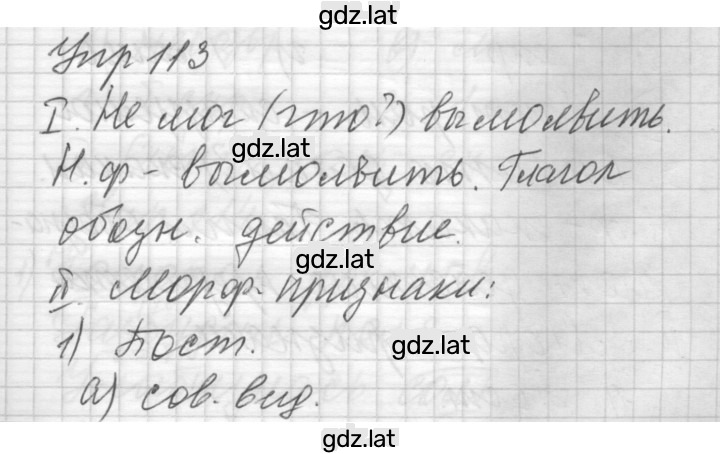 gdz.lat
Упр 113
I. Не мог (что?) вымолвить.
gdz.lat
Н.ф - вымолвить. Глагол
обозн. действие.
gdz.lat
II. Морф. признаки:
1) Пост.
gdz.lat
а) сов. вид.
gdz.lat